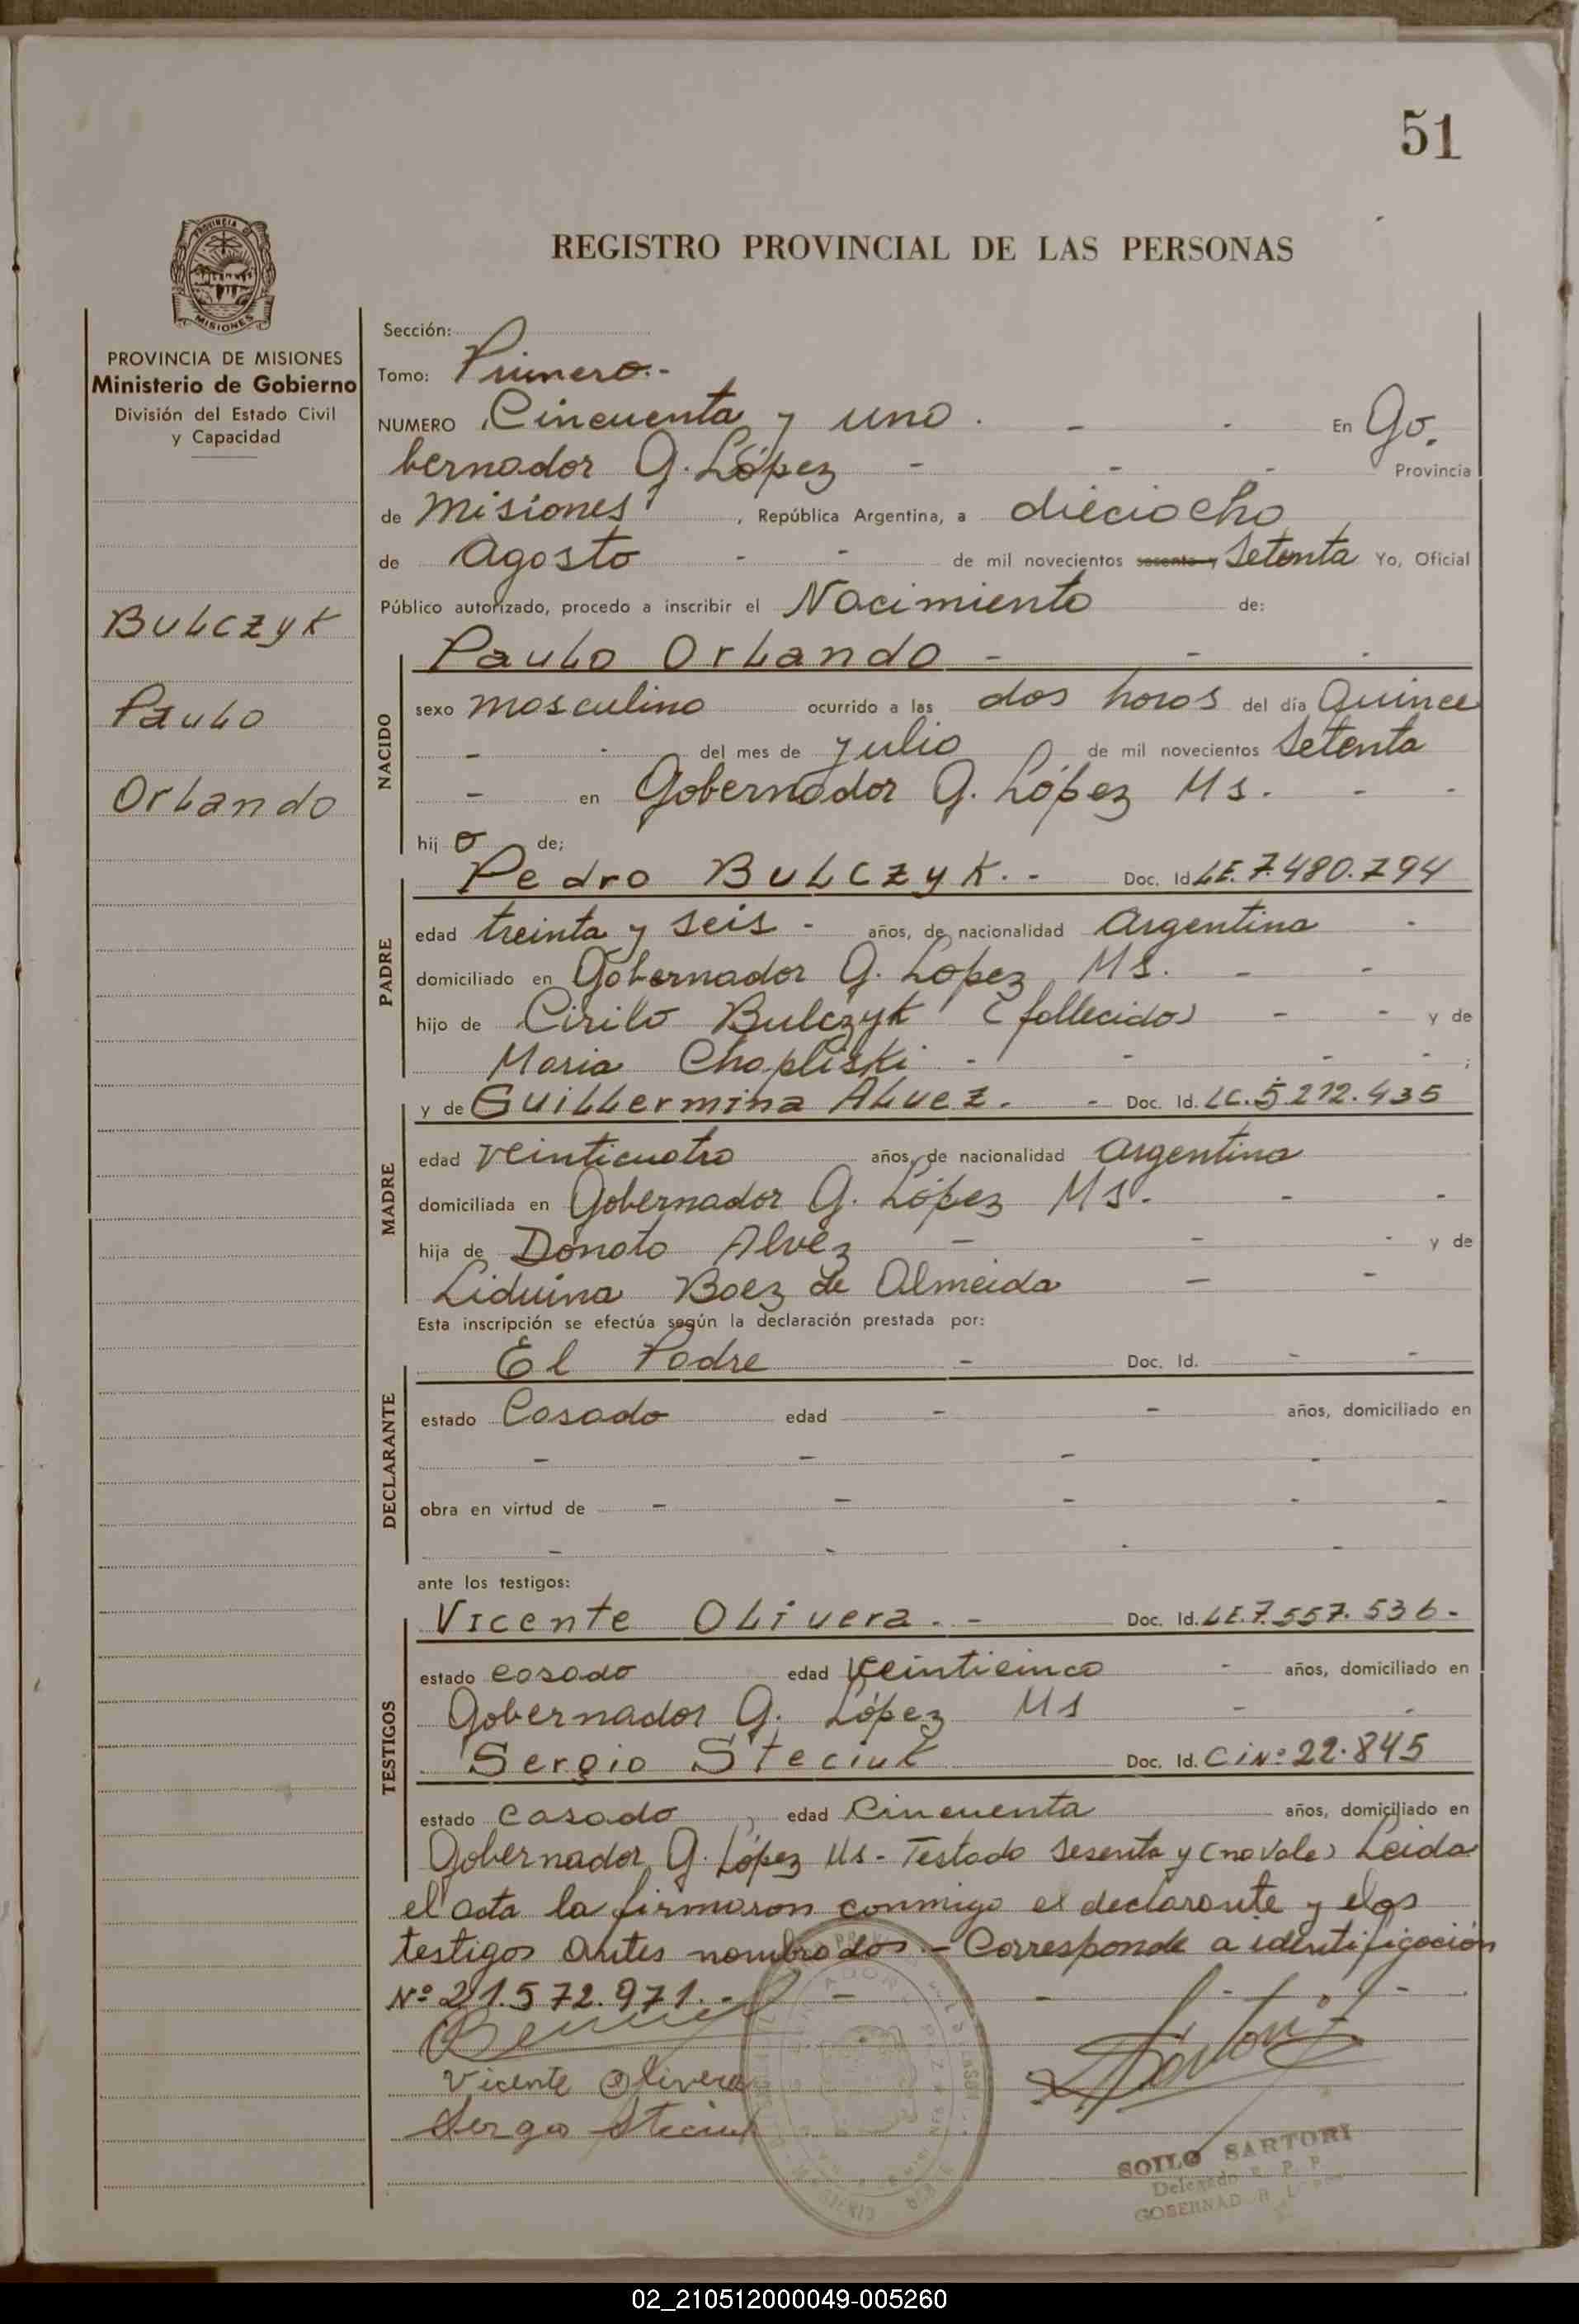 51
REGISTRO PROVINCIAL DE LAS PERSONAS
PROVINCIA DE
MISIONES
PROVINCIA DE MISIONES
Ministerio de Gobierno
División del Estado Civil
y Capacidad
BULCZYK
Paulo
Orlando
Sección:
Tomo: Primero.-
NUMERO Cincuenta y uno. - - En Go.
bernador G. López - - - Provincia
de Misiones, República Argentina, a dieciocho
de Agosto - - de mil novecientos sesenta y Setenta Yo, Oficial
Público autorizado, procedo a inscribir el Nacimiento de:
NACIDO
Paulo Orlando - - -
sexo masculino ocurrido a las dos horas del día Quince
- - del mes de julio de mil novecientos Setenta
- en Gobernador G. López Ms. - -
hij o de;
PADRE
Pedro BULCZYK. - Doc. Id. LE. 7.480.794
edad treinta y seis - años, de nacionalidad Argentina -
domiciliado en Gobernador G. Lopez Ms. - -
hijo de Cirilo Bulczyk (fallecido) - - y de
Maria Chapliski - - - - ;
MADRE
y de Guillermina ALvez. - Doc. Id. LC. 5.212.435
edad veinticuatro años, de nacionalidad Argentina
domiciliada en Gobernador G. López Ms. - -
hija de Donato Alvez - - - y de
Liduina Baez de Almeida - -
Esta inscripción se efectúa según la declaración prestada por:
DECLARANTE
El Padre - Doc. Id. - -
estado Casado edad - - años, domiciliado en
- - - -
obra en virtud de - - - - -
- - - -
ante los testigos:
TESTIGOS
Vicente OLivera. - Doc. Id. LE. 7.557.536-
estado casado edad veinticinco - años, domiciliado en
Gobernador G. López Ms - -
Sergio Steciuk Doc. Id. CiNº 22.845
estado casado, edad Cincuenta años, domiciliado en
Gobernador G. López Ms - Testado sesenta y (no vale) Leida
el acta la firmaron conmigo el declarante y los
testigos antes nombrados.- Corresponde a identificación
Nº 21.572.971. - - - - -
Vicente Olivera
Sergio Steciuk
SOILO SARTORI
Delegado R. P. P.
02_210512000049-005260